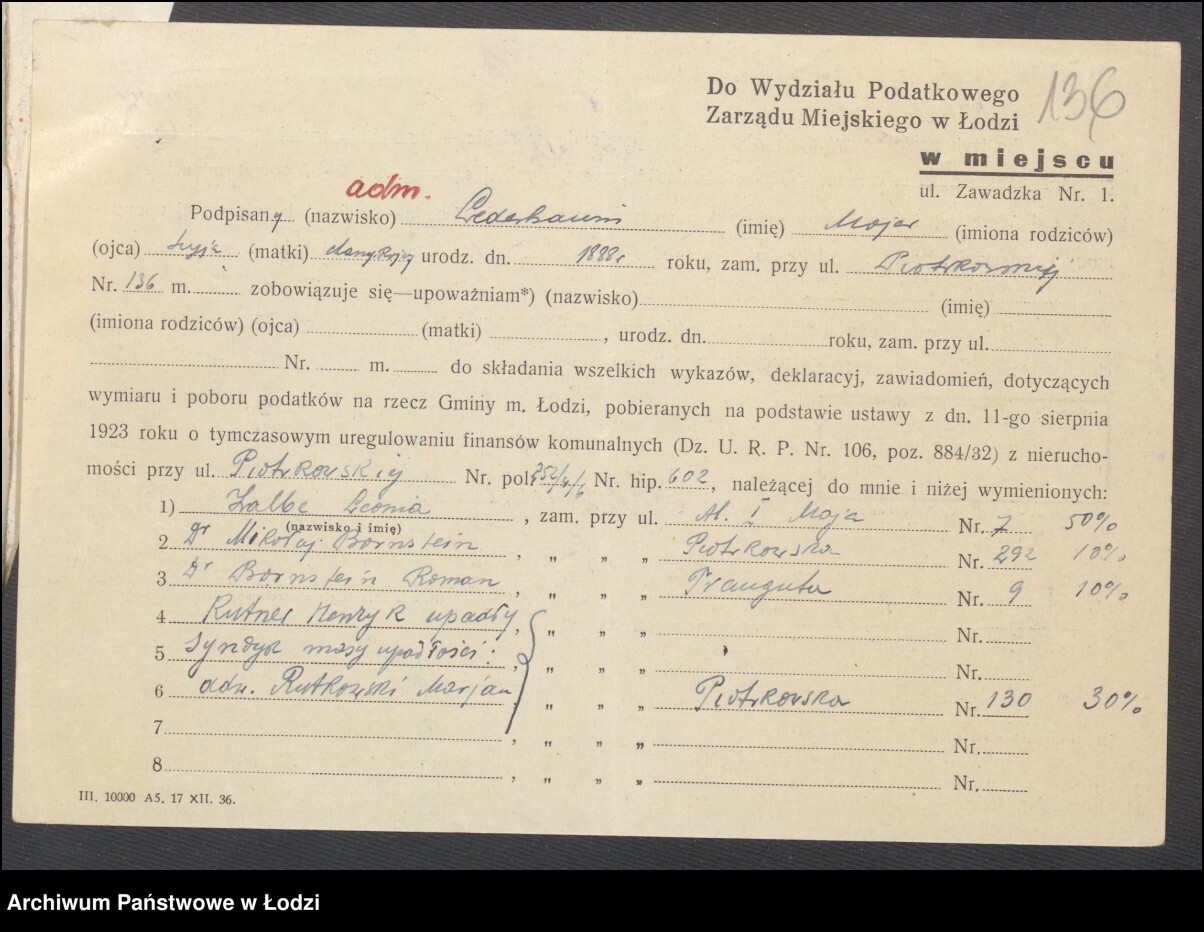 Do Wydziału Podatkowego
Zarządu Miejskiego w Łodzi
136
w miejscu
ul. Zawadzka Nr. 1.
adm.
Podpisany (nazwisko) (imię) Majer (imiona rodziców)
(ojca) (matki) urodz. dn. 1888r roku, zam. przy ul. Piotrkowskiej
Nr. 136 m. zobowiązuje się—upoważniam*) (nazwisko) (imię)
(imiona rodziców) (ojca) (matki) , urodz. dn. roku, zam. przy ul.
Nr. m. do składania wszelkich wykazów, deklaracyj, zawiadomień, dotyczących
wymiaru i poboru podatków na rzecz Gminy m. Łodzi, pobieranych na podstawie ustawy z dn. 11-go sierpnia
1923 roku o tymczasowym uregulowaniu finansów komunalnych (Dz. U. R. P. Nr. 106, poz. 884/32) z nierucho-
mości przy ul. Piotrkowskiej Nr. pol. Nr. hip. 602, należącej do mnie i niżej wymienionych:
1) Leonia , zam. przy ul. Al. I Maja Nr. 7 50%
(nazwisko i imię)
2 Dr Mikołaj Bornstein , „ „ „ Piotrkowska Nr. 292 10%
3 Dr Bornstein Roman , „ „ „ Traugutta Nr. 9 10%
4 Rutner Henryk upadły , „ „ „ Nr.
5 Syndyk masy upadłości: , „ „ „ Nr.
6 adw. Rutkowski Marjan , „ „ „ Piotrkowska Nr. 130 30%
7 , „ „ „ Nr.
8 , „ „ „ Nr.
III. 10000 A5. 17 XII. 36.
Archiwum Państwowe w Łodzi